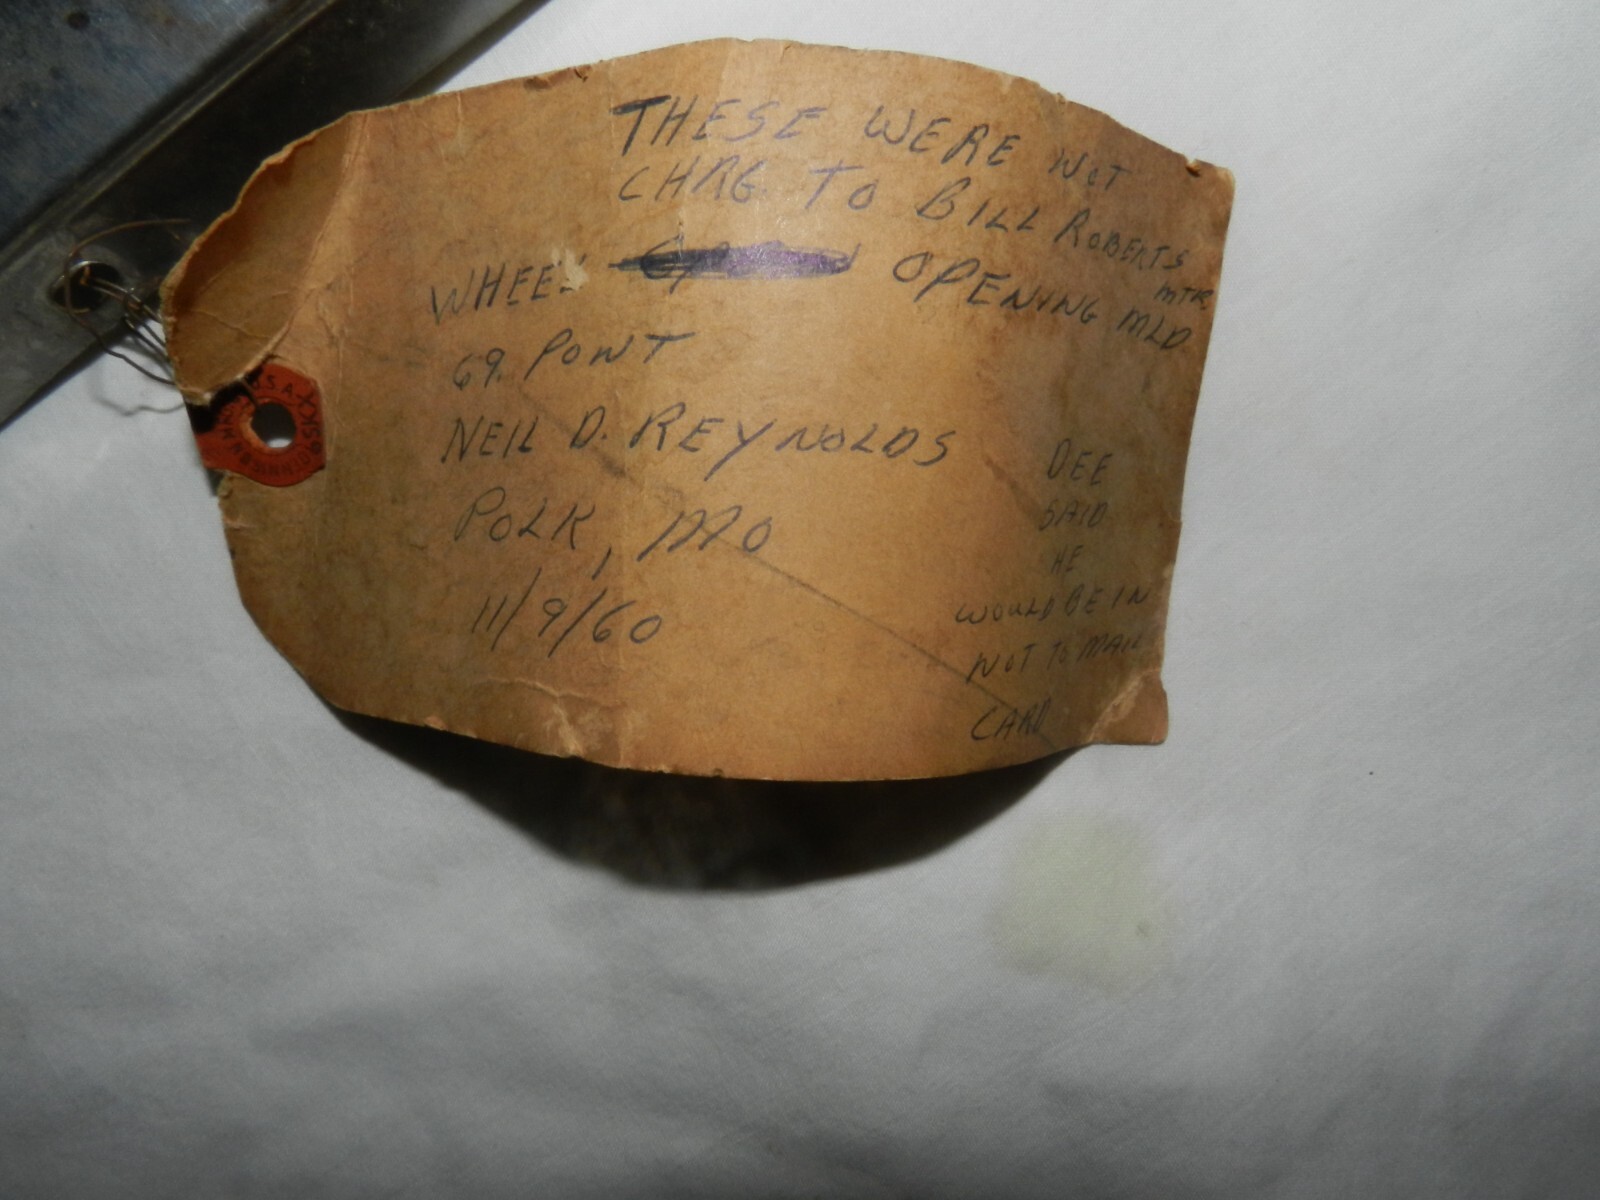 THESE WERE NOT
CHRG. TO BILL ROBERTS
MTR.
WHEEL OPENING MLD
69. PONT
NEIL D. REYNOLDS
POLK, MO
11/9/60
DEE
SAID
HE
WOULD BE IN
NOT TO MAIL
CARD
U.S.A.
DENNISON